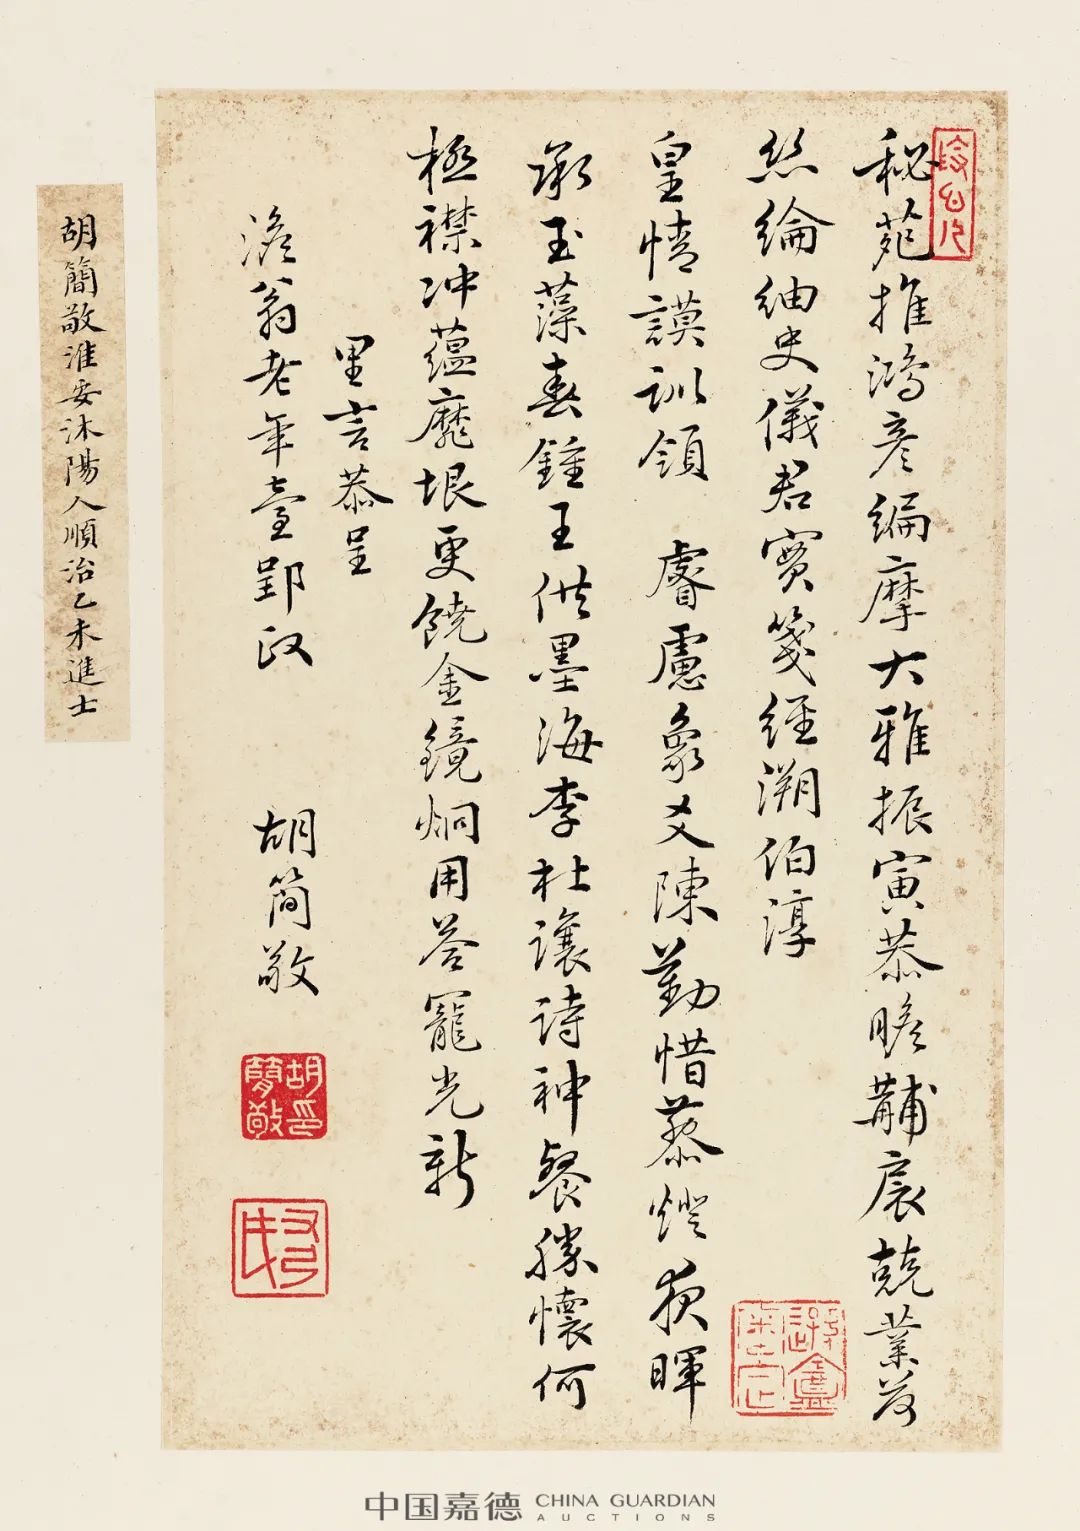 秘苑推鴻彥編摩大雅振寅恭瞻黼扆兢業荷
絲綸紬史儀君實箋經溯伯淳
皇情謨訓領 睿慮象爻陳勤惜藜燈夜暉
承玉藻春鍾王供墨海李杜讓詩神餐勝懷何
極襟沖蘊靡垠更饒金鏡炯用答寵光新
里言恭呈
澹翁老年臺郢政
胡簡敬
胡簡敬印
胡簡敬淮安沐陽人順治乙未進士
中国嘉德 CHINA GUARDIAN
AUCTIONS